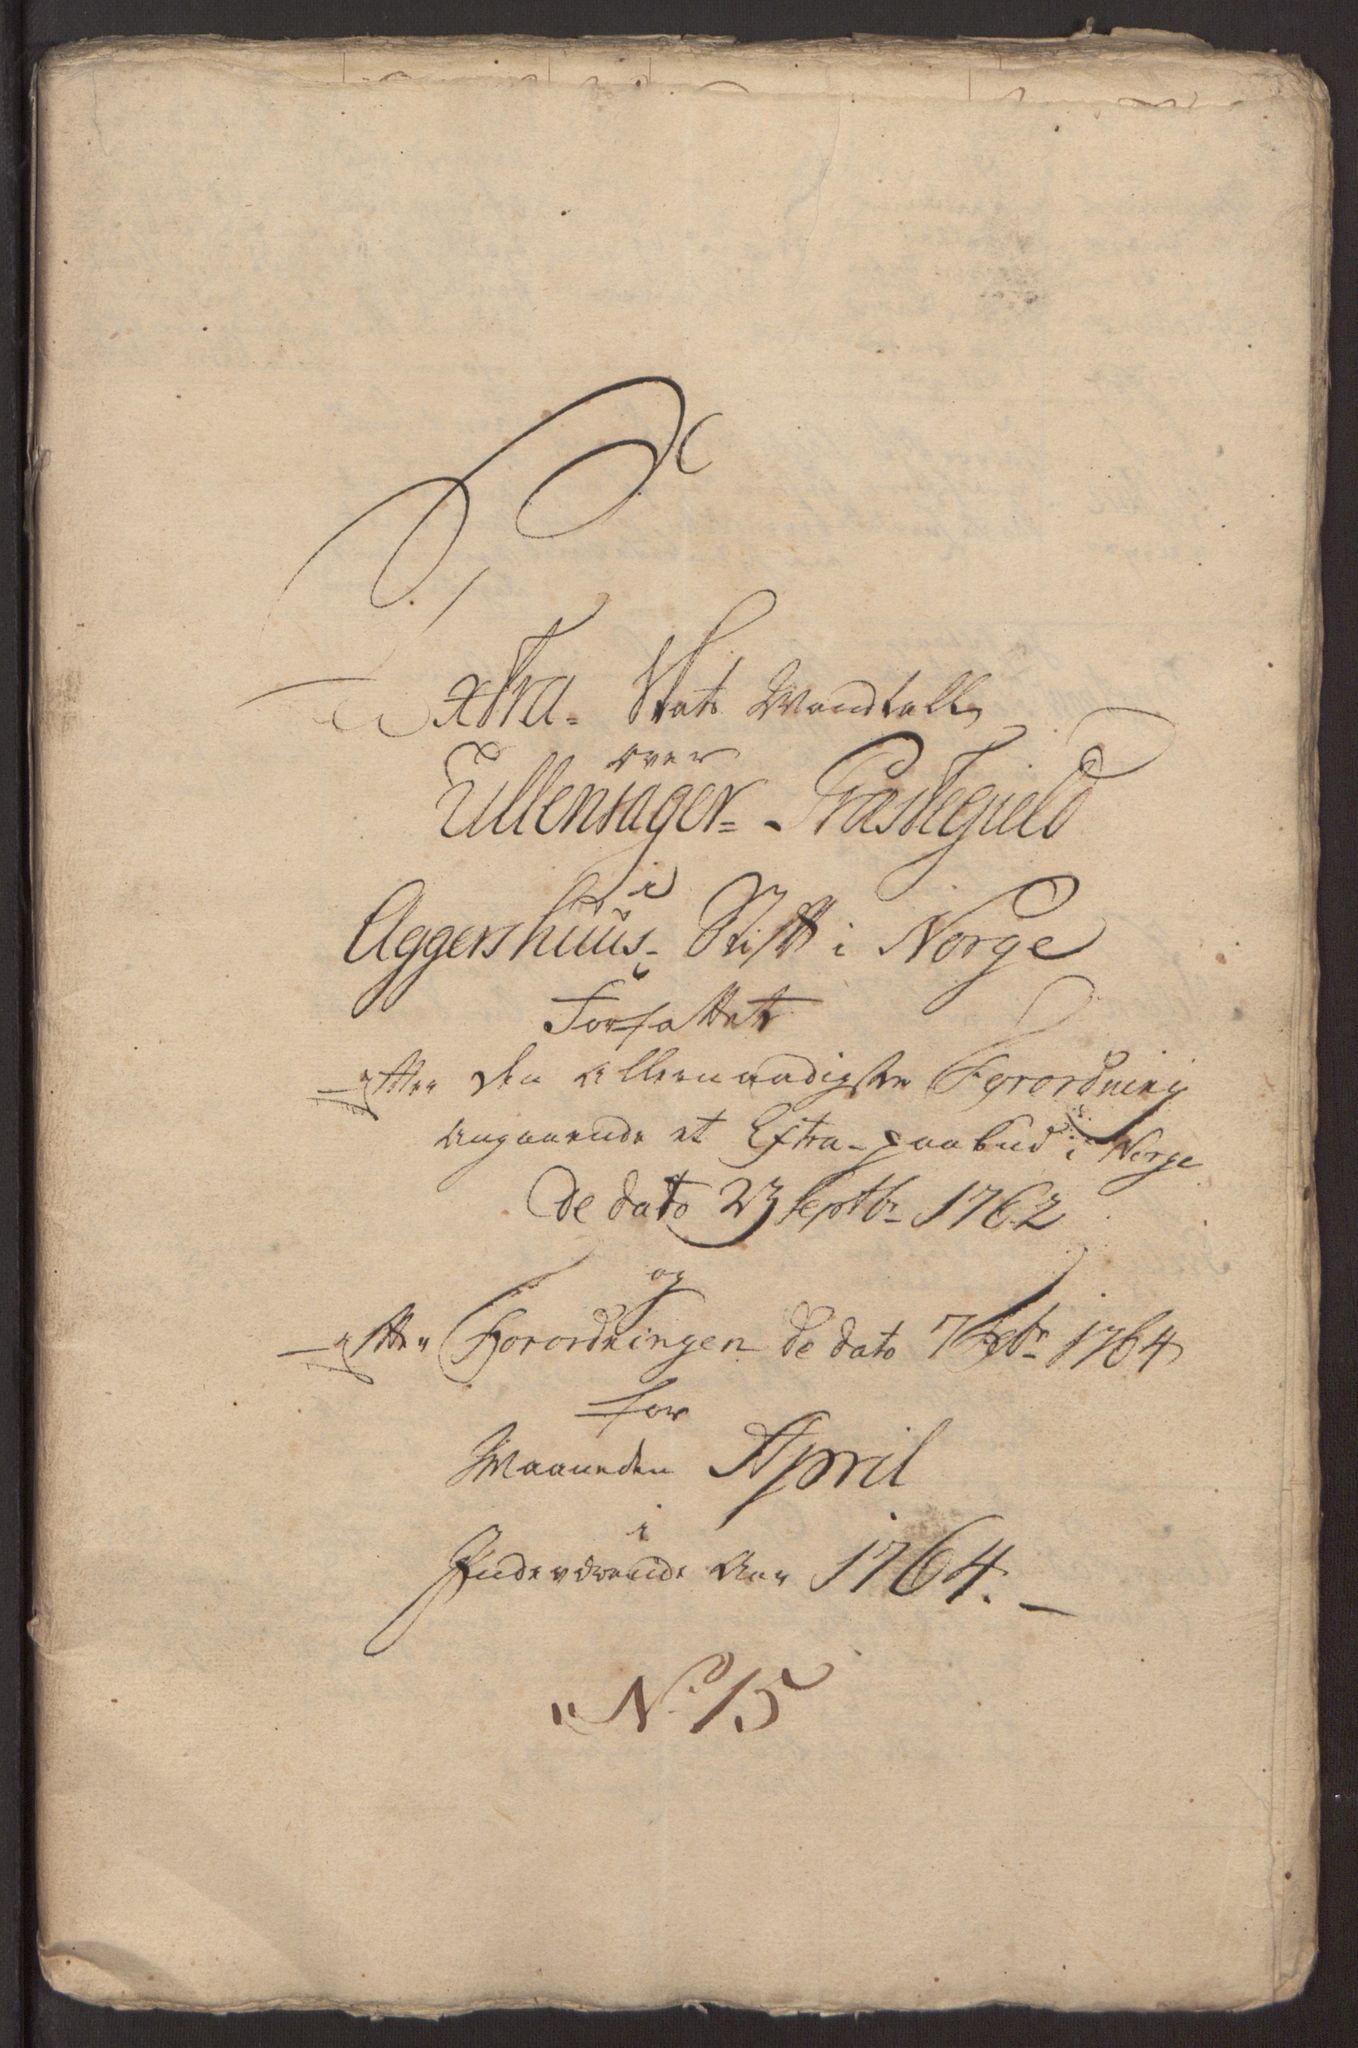 Extra- Skatt Mandtall
over
Ullensager- Præstegield
i
Aggershuus- Stift i Norge
Forfattet
efter den allernaadigste Forordning
angaaende et Extra-paabud i Norge
de dato 23 Septbr 1762
og
efter Forordningen de dato 7 Febr 1764
for
Maaneden April
i
Indeværende Aar 1764.
No. 15